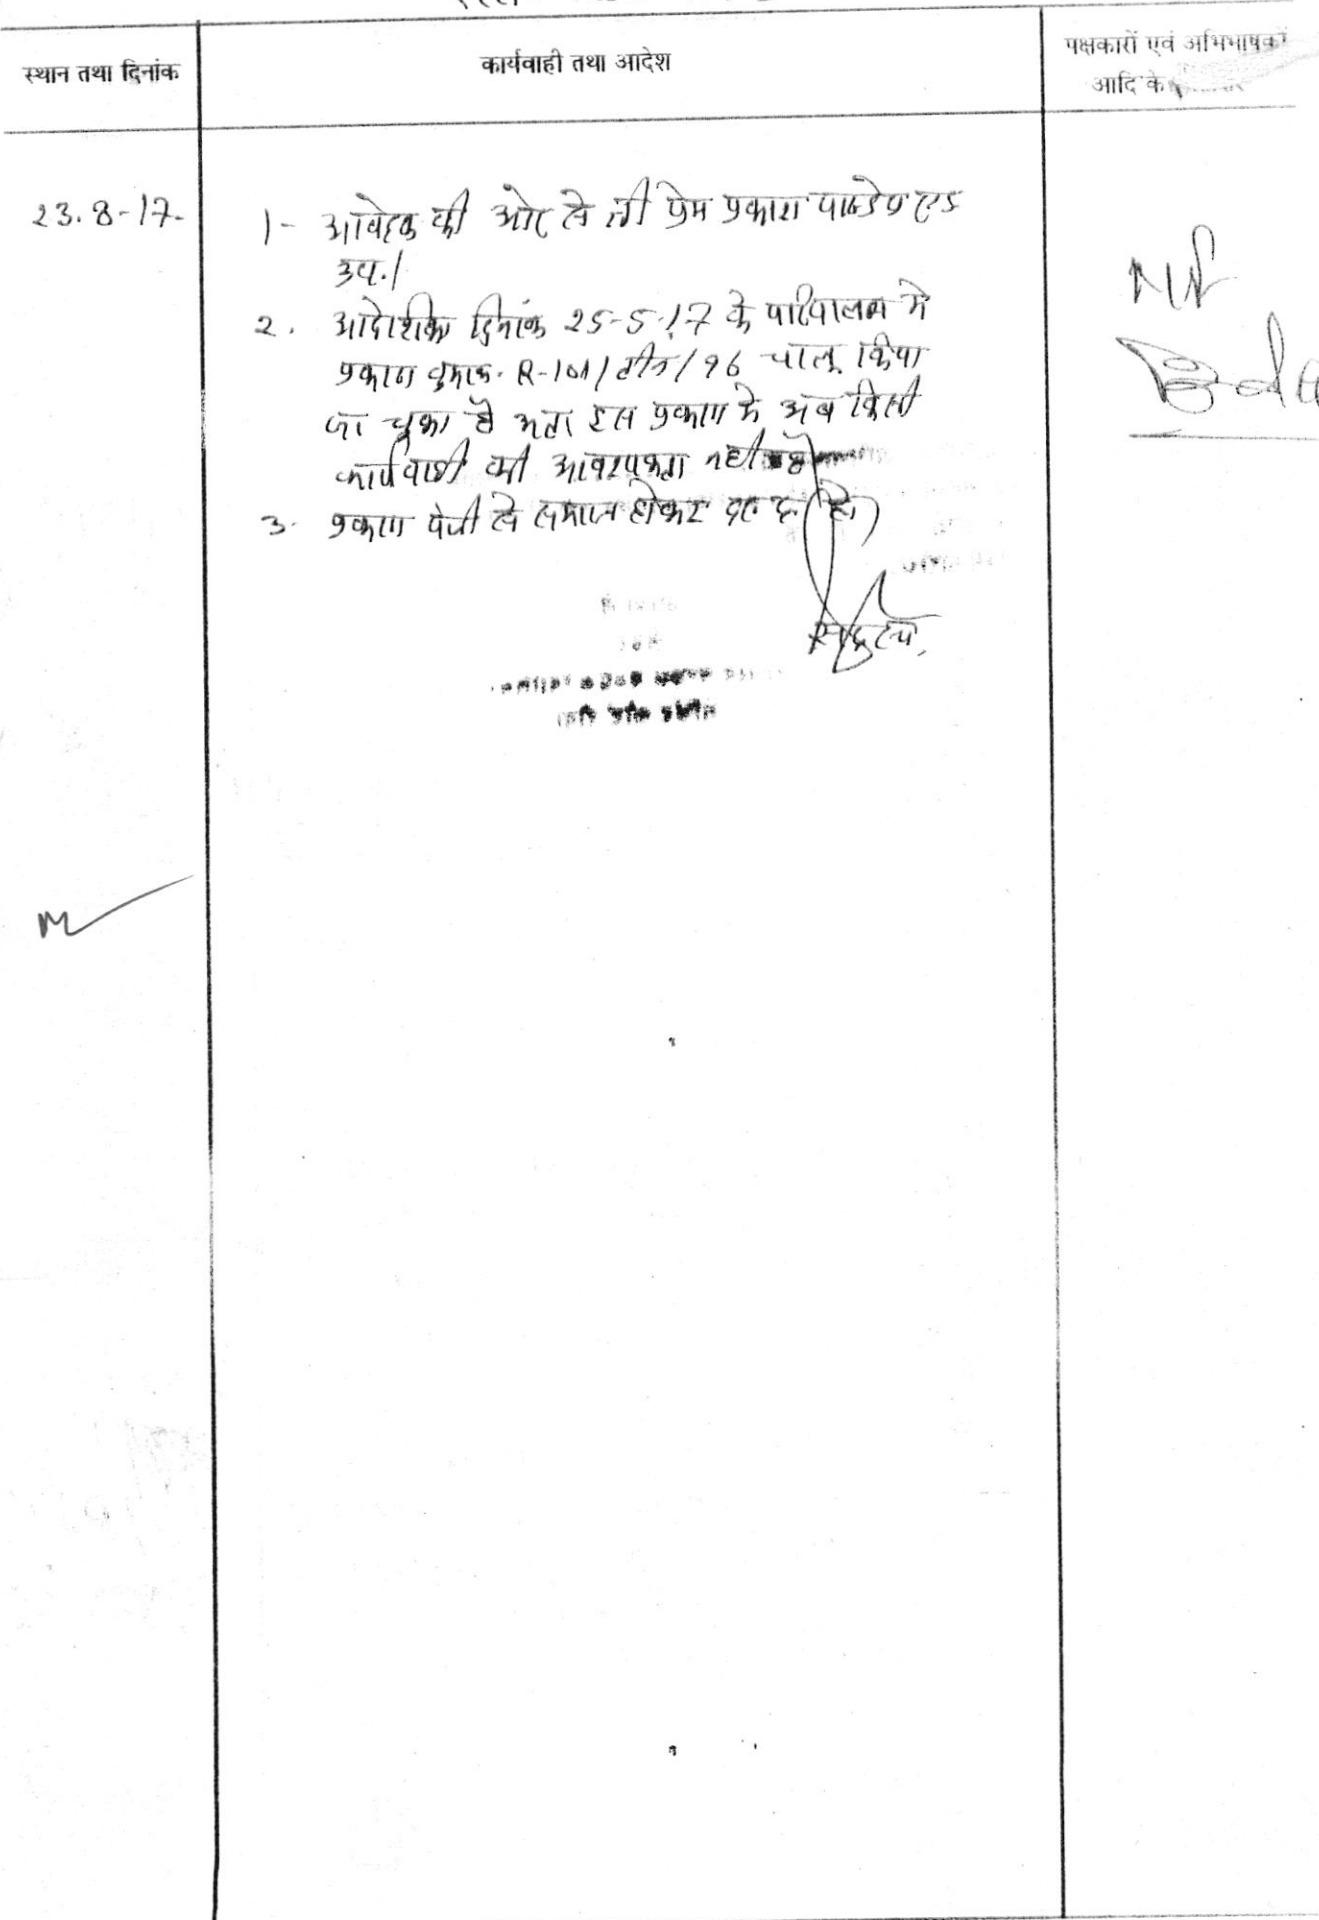 स्थान तथा दिनांक
कार्यवाही तथा आदेश
पक्षकारों एवं अभिभाषकों
आदि के
23.8-17.
1- आवेदक की ओर से श्री प्रेम प्रकाश पाण्डेय एड
उप./
2. आदेशिका दिनांक 25-5-17 के परिपालन मे
प्रकरण क्रमांक. R-101/तीन/96 चालू किया
जा चुका है अतः इस प्रकरण मे अब किसी
कार्यवाही की आवश्यकता नही है
3. प्रकरण पंजी से समाप्त होकर द० द० हो
सदस्य